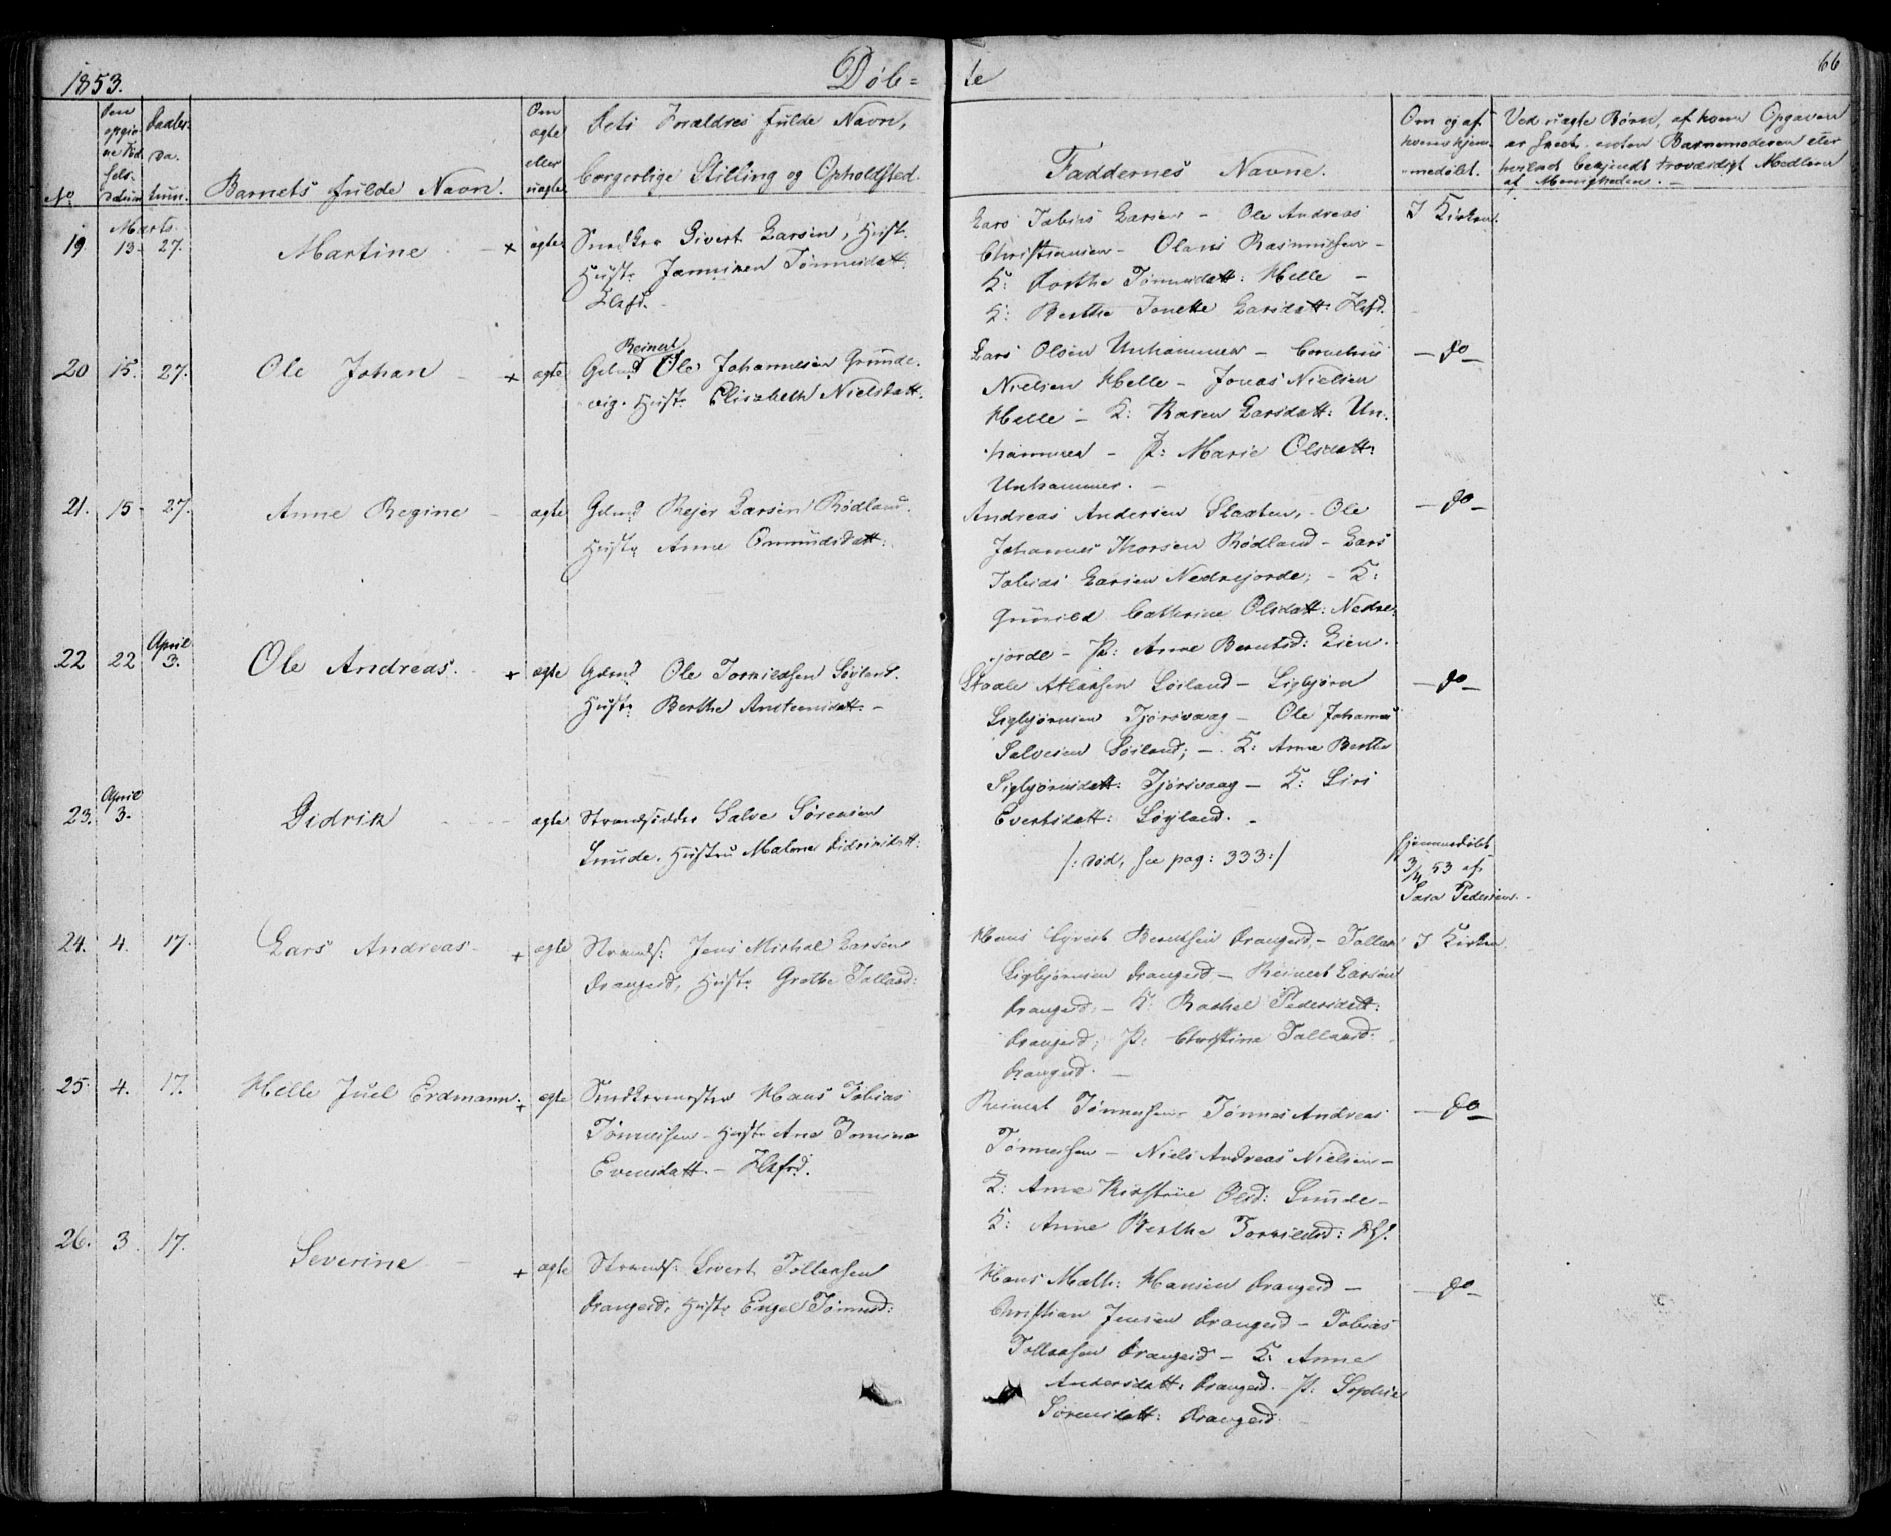 1853. Døb=
te 66
No
Den opgivne Fødselsdatum
Daabsdatum.
Barnets fulde Navn.
Om ægte eller uægte
Dets Forældres fulde Navn,
borgerlige Stilling og Opholdsted.
Faddernes Navne.
Om og af hvem hjemmedøbt.
Ved uægte Børn, af hvem Opgaven
er skeet, enten Barnemoderen eller
heilat bekjendt troværdigt Medlem
af Menigheden. —
Marts
19 13. 27. Martine × ægte Snedker Sivert Larsen, Hust.
Hustr. Janniken Tønnesdatt:
Flkfd.
Lars Tobias Larsen — Ole Andreas
Christiansen — Olaus Rasmussen —
K: Dorthe Tønnesdatt: Helle —
K: Berthe Jonette Larsdatt: Flkfd.
I Kirken.
20 15. 27. Ole Johan × ægte Gdmd Reinert Ole Johannesen Grunde-
vig. Hustr. Elisabeth Nielsdatt.
Lars Olsen Unhammer — Cornelius
Nielsen Helle — Jonas Nielsen
Helle — K: Karen Larsdatt: Un-
hammer — P: Marie Olsdatt:
Unhammer. —
— do —
21. 15 27. Anne Regine ægte Gdmd Rejer Larsen Rødland.
Hustr. Anne Omundsdatt:
Andreas Andersen Slaaten, — Ole
Johannes Thorsen Rødland — Lars
Tobias Larsen Nedrejorde; — K:
Gunild Cathrine Olsdatt: Nedre-
jorde — P: Anne Berntsd: Lien.
— do —
April
22 22 3. Ole Andreas. + ægte Gdmd Ole Torkildsen Søyland.
Hustr. Berthe Ansteensdatt: —
Staale Atlaksen Søiland — Sigbjørn
Sigbjørnsen Tjørsvaag — Ole Johannes
Salvesen Søiland; — K: Anne Berthe
Sigbjørnsdatt: Tjørsvaag — K: Siri
Evertsdatt: Søyland. —
— do —
April
23. 3. Didrik ægte Strandsidder Salve Sørensen
Sunde, Hustru Malene Didriksdatt:
/: død, see pag: 333:/
hjemmedøbt
3/4 53 af
Sara Pedersen.
24. 4. 17. Lars Andreas + ægte Strands: Jens Michal Larsen
Drangeid, Hustr. Grethe Tollaksd:
Hans Syvert Berntsen Drangeid — Tollak
Sigbjørnsen Drangeid — Reinert Larsen
Drangeid, — K: Rachel Pedersdatt:
Drangeid; P: Christine Tollaksd:
Drangeid. —
I Kirken.
25. 4. 17. Helle Juel Erdmann. + ægte Snedkermester Hans Tobias
Tønnessen — Hustr. Ane Tomine
Evensdatt. — Flkfd.
Reinert Tønnessen, Tønnes Andreas
Tønnessen — Niels Andreas Nielsen —
K: Anne Kirstine Olsd: Sunde —
K: Anne Berthe Torkildsd:
— do —
26. 3. 17. Severine + ægte Strands: Sivert Tollaksen
Drangeid, Hustr. Engel Tønnesd:
Hans Math: Hansen Drangeid —
Christian Jensen Drangeid — Tobias
Tollaksen Drangeid — K: Anne
Andersdatt: Drangeid. P: Sophie
Sørensdatt: Drangeid.
— do —